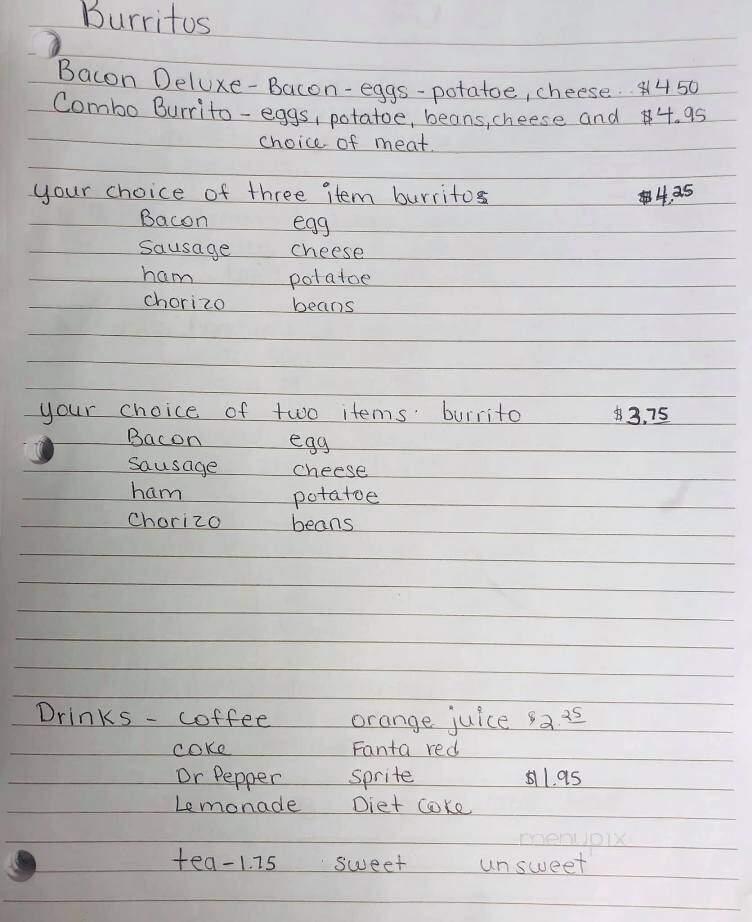 Burritos
Bacon Deluxe - Bacon - eggs - potatoe, cheese.. $4 50
Combo Burrito - eggs, potatoe, beans, cheese and $4.95
choice of meat.
your choice of three item burritos $4.25
Bacon egg
Sausage cheese
ham potatoe
chorizo beans
your choice of two items. burrito $3.75
Bacon egg
Sausage cheese
ham potatoe
Chorizo beans
Drinks - coffee orange juice $2.25
coke Fanta red
Dr Pepper Sprite $1.95
Lemonade Diet Coke
menupix
tea - 1.75 sweet unsweet